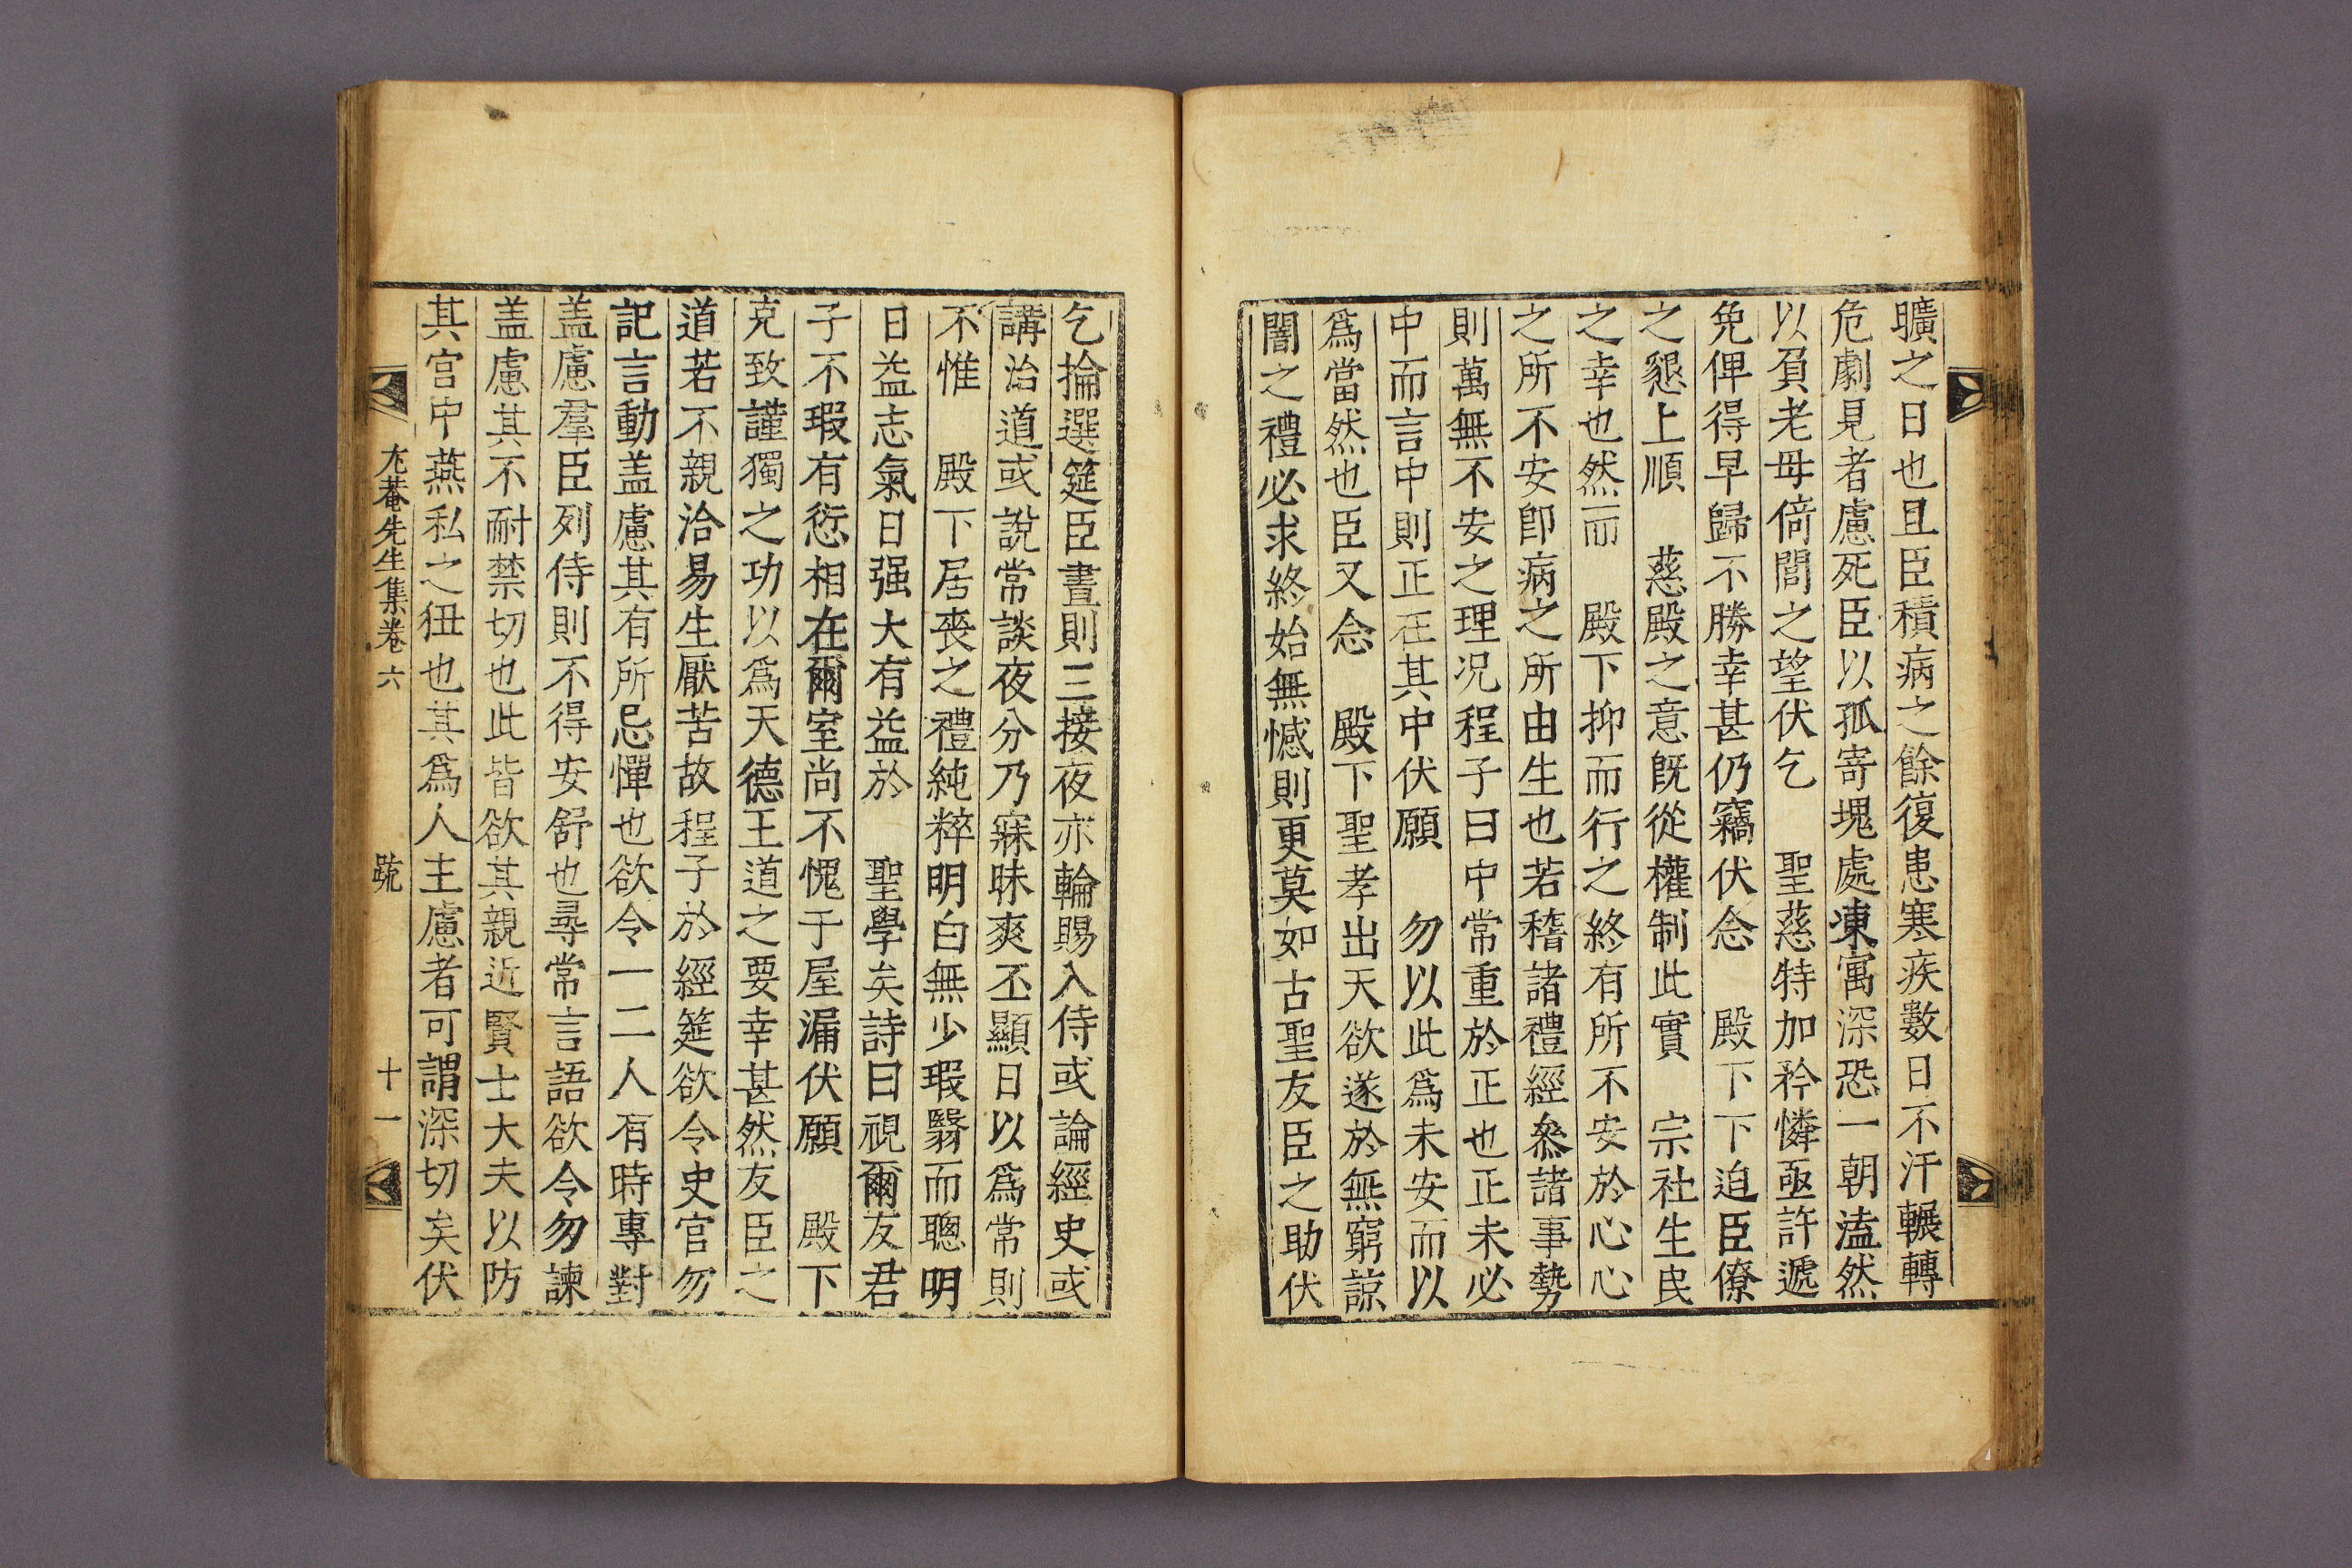 曠之日也且臣積病之餘復患寒疾數日不汗輾轉
危劇見者慮死臣以孤寄塊處凍寓深恐一朝溘然
以負老母倚閭之望伏乞 聖慈特加矜憐亟許遞
免俾得早歸不勝幸甚仍竊伏念 殿下下迫臣僚
之懇上順 慈殿之意旣從權制此實 宗社生民
之幸也然而 殿下抑而行之終有所不安於心心
之所不安卽病之所由生也若稽諸禮經叅諸事勢
則萬無不安之理况程子曰中常重於正也正未必
中而言中則正在其中伏願 勿以此爲未安而以
爲當然也臣又念 殿下聖孝出天欲遂於無窮諒
闇之禮必求終始無憾則更莫如古聖友臣之助伏
乞掄選筵臣晝則三接夜亦輪賜入侍或論經史或
講治道或說常談夜分乃寐昧爽丕顯日以爲常則
不惟 殿下居喪之禮純粹明白無少瑕翳而聰明
日益志氣日强大有益於 聖學矣詩曰視爾友君
子不瑕有愆相在爾室尚不愧于屋漏伏願 殿下
克致謹獨之功以爲天德王道之要幸甚然友臣之
道若不親洽易生厭苦故程子於經筵欲令史官勿
記言動盖慮其有所忌憚也欲令一二人有時專對
盖慮羣臣列侍則不得安舒也尋常言語欲令勿諫
盖慮其不耐禁切也此皆欲其親近賢士大夫以防
其宫中燕私之狃也其爲人主慮者可謂深切矣伏
尤菴先生集卷六 疏 十一